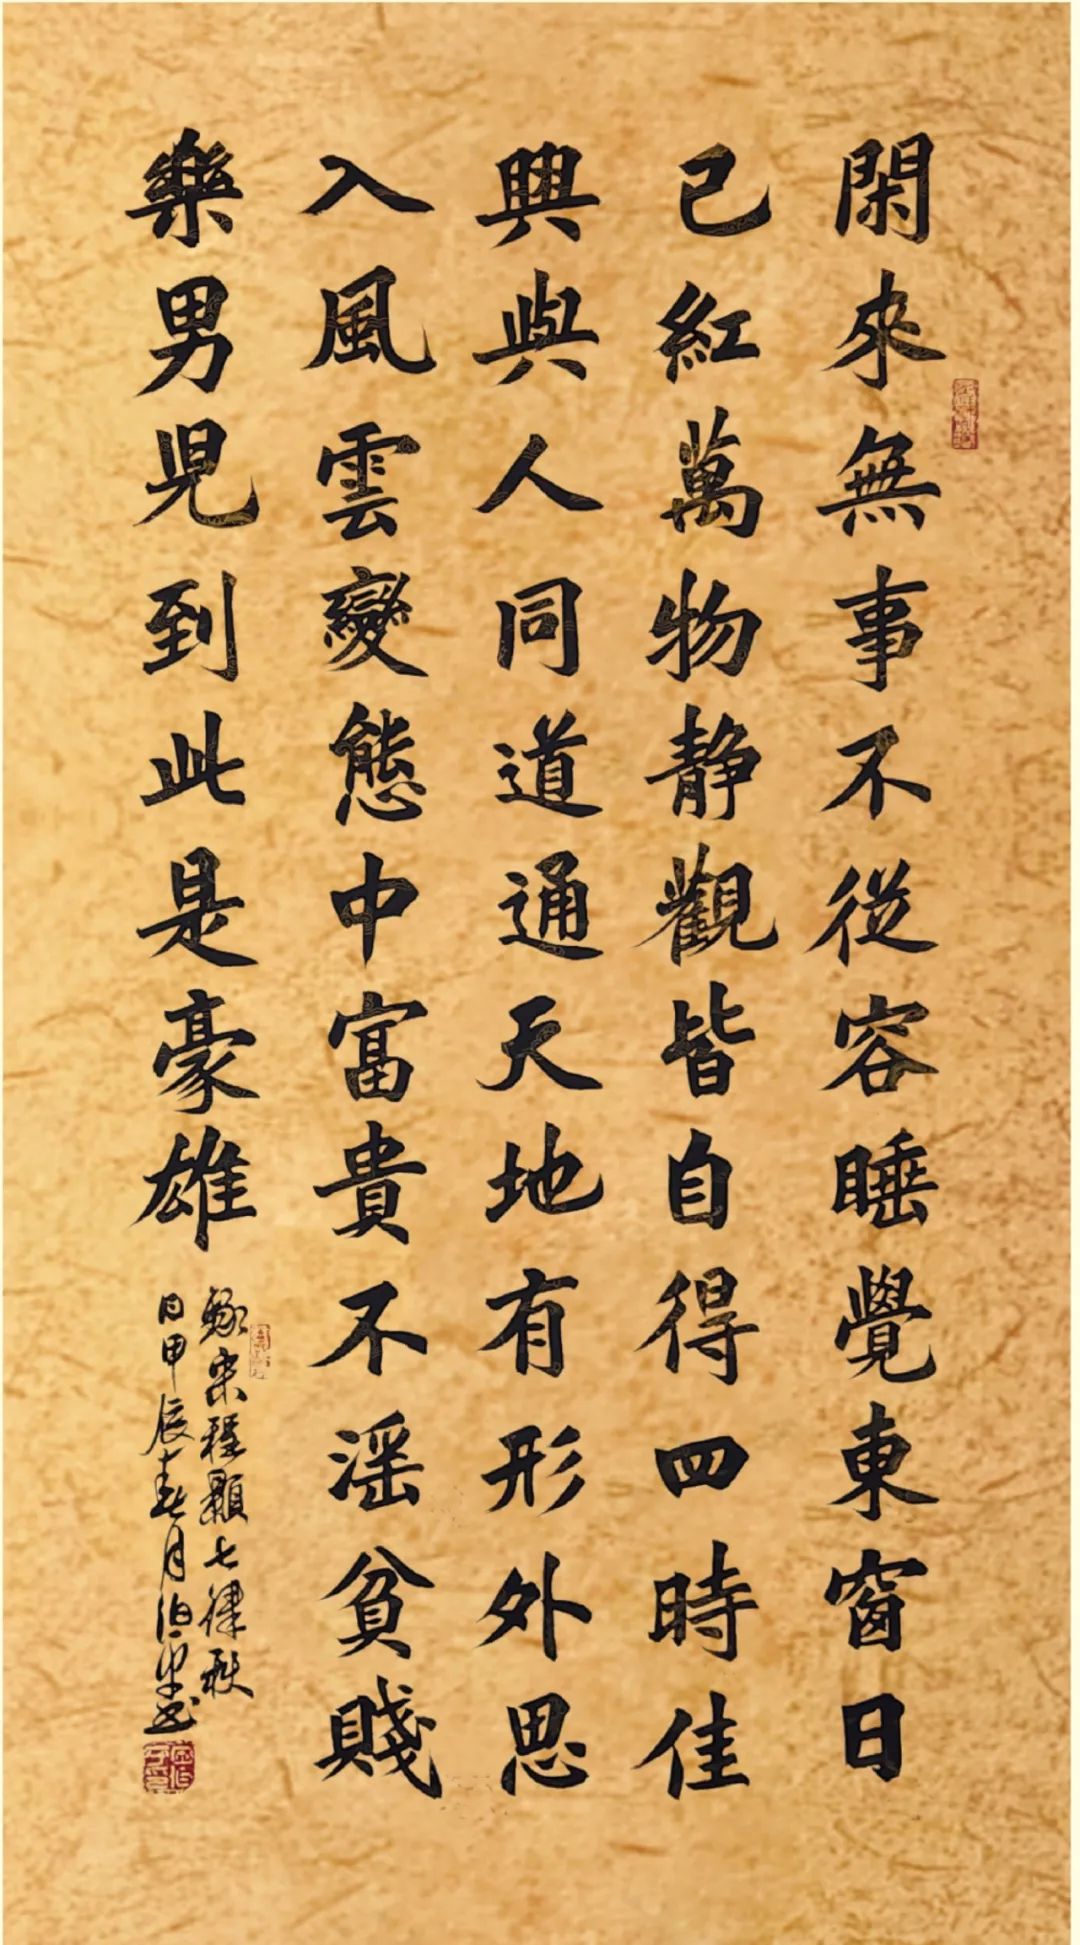 閑來無事不從容睡覺東窗日
已紅萬物静觀皆自得四時佳
興與人同道通天地有形外思
入風雲變態中富貴不滛貧賤
樂男兒到此是豪雄
錄宋程顥七律秋
日甲辰春月伯书